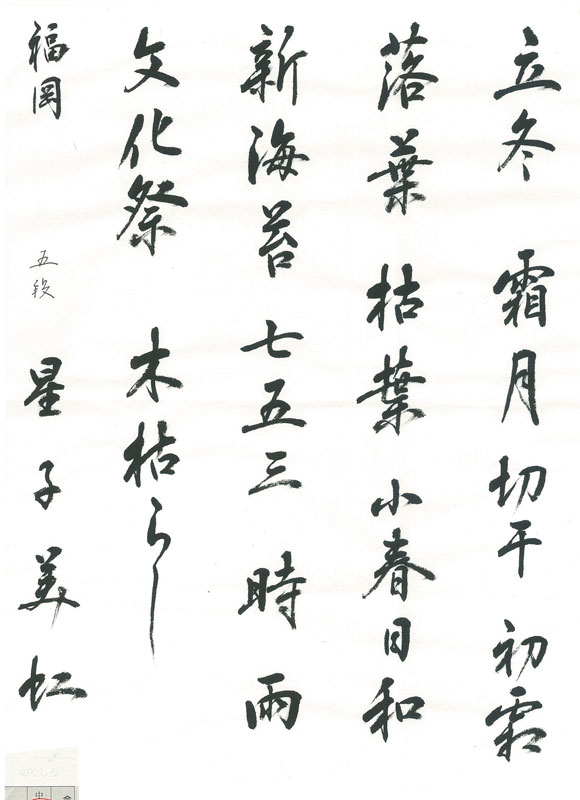 立冬 霜月 切干 初霜
落葉 枯葉 小春日和
新海苔 七五三 時雨
文化祭 木枯らし
福岡 五段 星子美虹
のりしろ
中